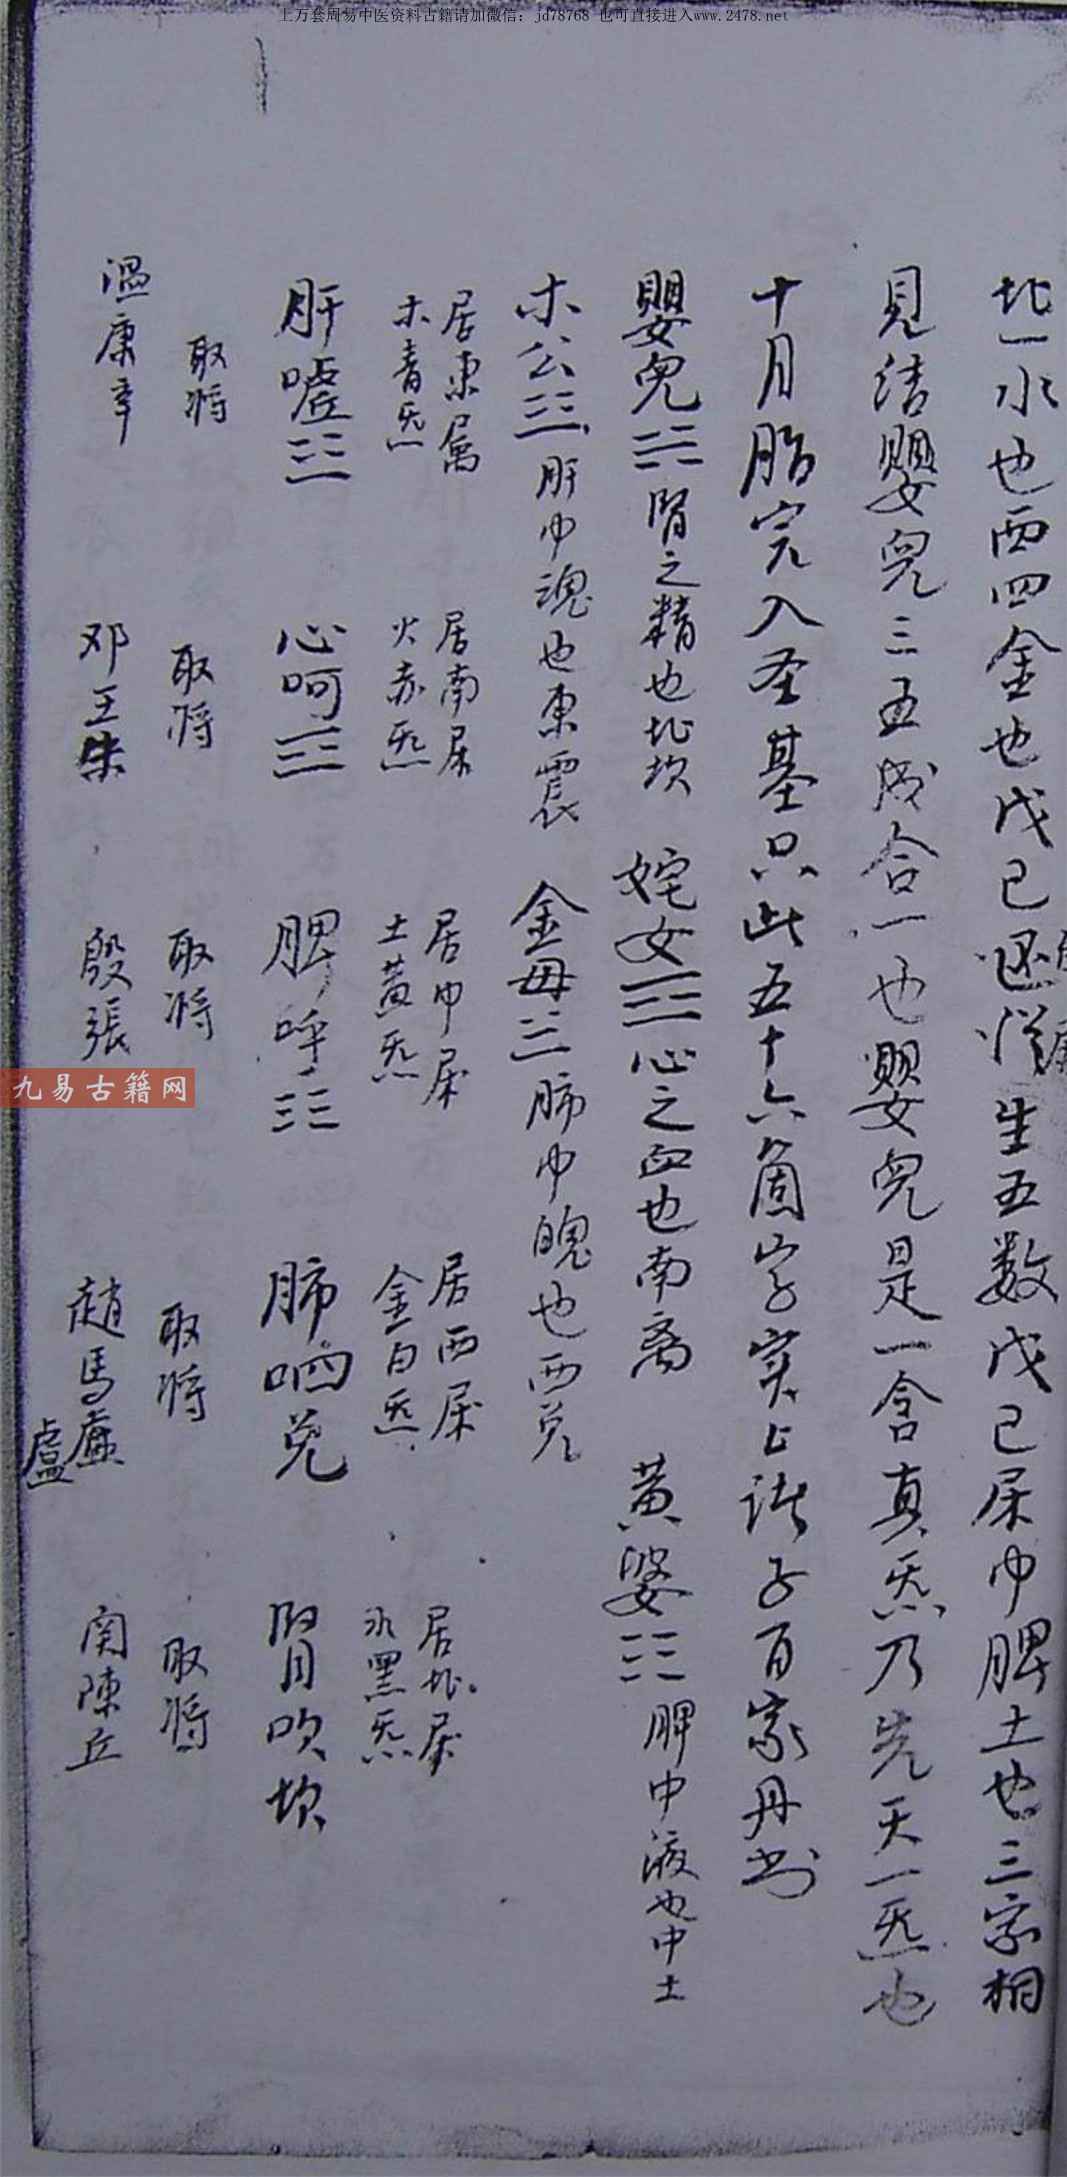 上万套周易中医资料古籍请加微信：jd78768 也可直接进入www.2478.net
北一水也西四金也戊己还从生五数戊己属中脾土也三家相
見结嬰兒三五成合一也嬰兒是一含真炁乃先天一炁也
十月胎完入圣基只此五十六箇字实上诸子百家丹书
嬰兒☵腎之精也北坎 姹女☲心之血也南离 黄婆☷脾中液也中土
木公☳肝中魂也東震 金母☱肺中魄也西兑
居東属木青炁 居南属火赤炁 居中属土黄炁 居西属金白炁 居北属水黑炁
肝嘘☳ 心呵☲ 脾呼☷ 肺呬兑 腎吹坎
取将 取将 取将 取将 取将
温康辛 邓王朱 殷張 趙馬 関陳丘
盧
九易古籍网